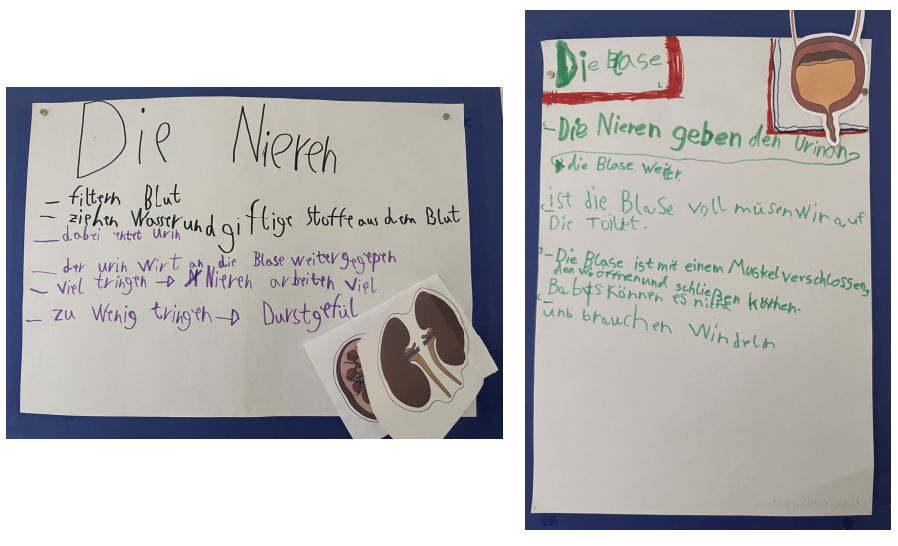 Die Nieren
– filtern Blut
– ziehen Wasser und giftige Stoffe aus dem Blut
– dabei urin
– der urin wirt an die Blase weitergegepen
– viel tringen → Nieren arbeiten viel
– zu Wenig tringen → Durstgefül
Die Blase
– Die Nieren geben den Urin an
die Blase weiter.
ist die Blase voll müsen Wir auf
Die Toilet.
– Die Blase ist mit einem Muskel verschlossen,
den wir öffnen und schließen können.
– Babys Können es nicht
und brauchen Windeln